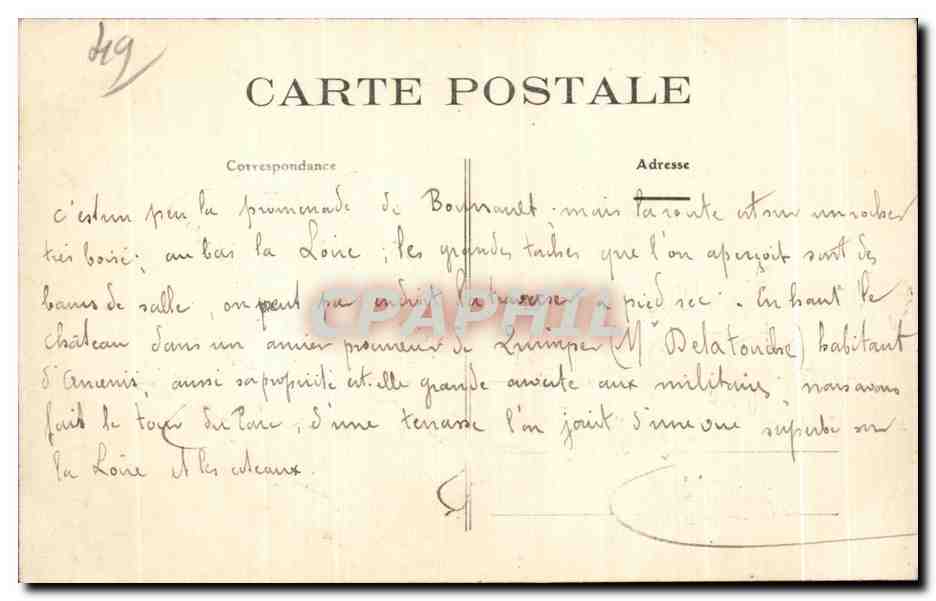 49
CARTE POSTALE
Correspondance
Adresse
c'est un peu la promenade de Boursault, mais la route est sur un rocher
très boisé; au bas la Loire; les grandes taches que l'on aperçoit sont des
bancs de salle, on peut par endroit la traverser à pied sec. En haut le
château dans un ancien procureur de Quimper (Mr Delatouche) habitant
d'Ancenis, aussi sa propriété est-elle grande ouverte aux militaires; nous avons
fait le tour du Parc, d'une terrasse l'on jouit d'une vue superbe sur
la Loire et les coteaux.
CPAPHIL